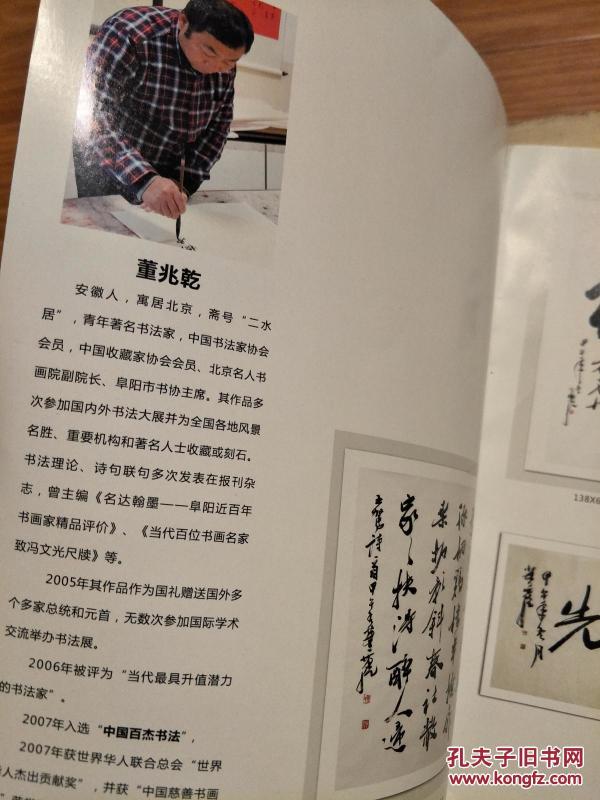 董兆乾
安徽人，寓居北京，斋号“二水
居”，青年著名书法家，中国书法家协会
会员，中国收藏家协会会员、北京名人书
画院副院长、阜阳市书协主席。其作品多
次参加国内外书法大展并为全国各地风景
名胜、重要机构和著名人士收藏或刻石。
书法理论、诗句联句多次发表在报刊杂
志，曾主编《名达翰墨——阜阳近百年
书画家精品评价》、《当代百位书画名家
致冯文光尺牍》等。
2005年其作品作为国礼赠送国外多
个多家总统和元首，无数次参加国际学术
交流举办书法展。
2006年被评为“当代最具升值潜力
的书法家”。
2007年入选“中国百杰书法”，
2007年获世界华人联合总会“世界
华人杰出贡献奖”，并获“中国慈善书画
桑柘影斜春社散
家家扶得醉人还
138X6
先
孔夫子旧书网
www.kongfz.com